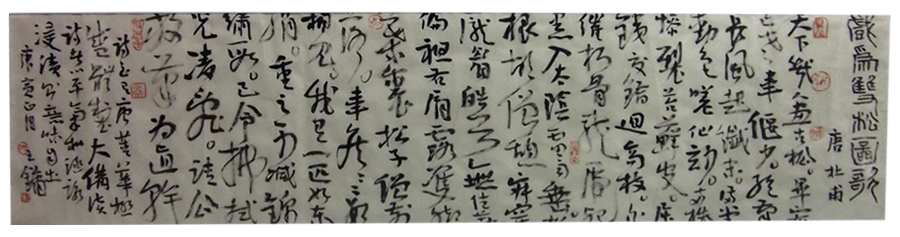 戲為雙松圖歌
唐 杜甫
天下幾人畫古松。畢宏
已老韋偃少。絕筆
長風起纖末。滿堂
動色嗟神妙。兩株
慘裂苔蘚皮。屈
鐵交錯迴高枝。白
摧朽骨龍虎死
黑入太陰雷雨垂松
根胡僧憩寂寞
龐眉皓首無住著
偏袒右肩露雙腳
葉裏松子僧前
落。韋侯韋侯數
相見。我有一匹好東
絹。重之不減錦
繡段。已令拂拭
光凌亂。請公
放筆為直幹
詩至有唐菁華極
盛體製大備讀
詩 平氣和涵泳
浸漬 味自出
庚寅正月 王鏞